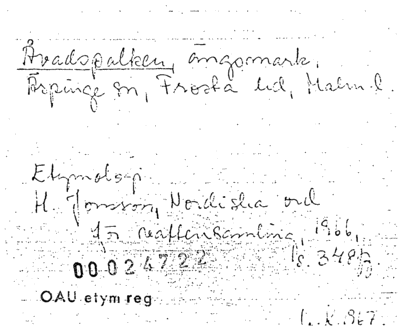 Åvadspalken, ängsmark,
Äspinge sn, Frosta hd, Malm. l.
Etymologi
H. Jonsson, Nordiska ord
för vattensamling, 1966,
s. 348 f.
00024722
OAU etym reg
1967.